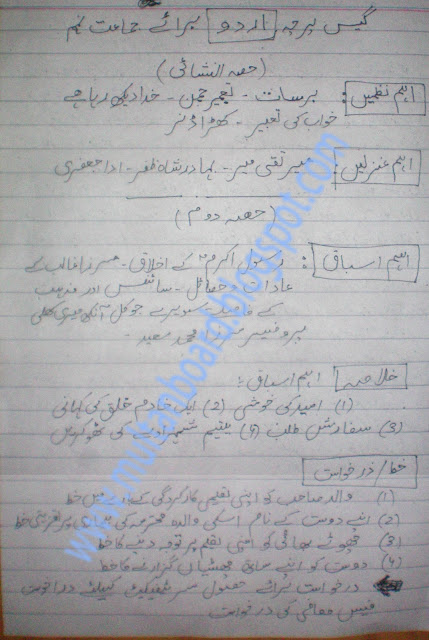 گیس پرچہ اردو برائے جماعت نہم
(حصہ انشائی)
اہم نظمیں: برسات - تعمیر چمن - خدا دیکھ رہا ہے
خواب کی تعبیر - کھڑا ڈنر
اہم غزلیں: میر تقی میر - بہادر شاہ ظفر - ادا جعفری
(حصہ دوم)
اہم اسباق: رسول اکرمؐ کے اخلاق - مرزا غالب کے
عادات و خصائل - سائنس اور مذہب
کے سویرے جو کل آنکھ میری کھلی
پروفیسر مرزا محمد سعید -
خلاصہ اہم اسباق:
(1) امید کی خوشی (2) ایک خادم خلق کی کہانی
(3) سفارش طلب (4) یتیم شہزادے کی ٹھوکریں
خط/درخواست
(1) والد صاحب کو اپنی تعلیمی کارکردگی کے بارے میں خط
(2) اپنے دوست کے نام اسکی والدہ محترمہ کی پر تعزیتی خط
(3) چھوٹے بھائی کو اپنی تعلیم پر توجہ دینے کا خط
(4) دوست کو اپنے ساتھ چھٹیاں گزارنے کا خط
درخواست برائے حصول سرٹیفیکیٹ کیلئے درخواست
فیس معافی کی درخواست
www.multanboard.blogspot.com